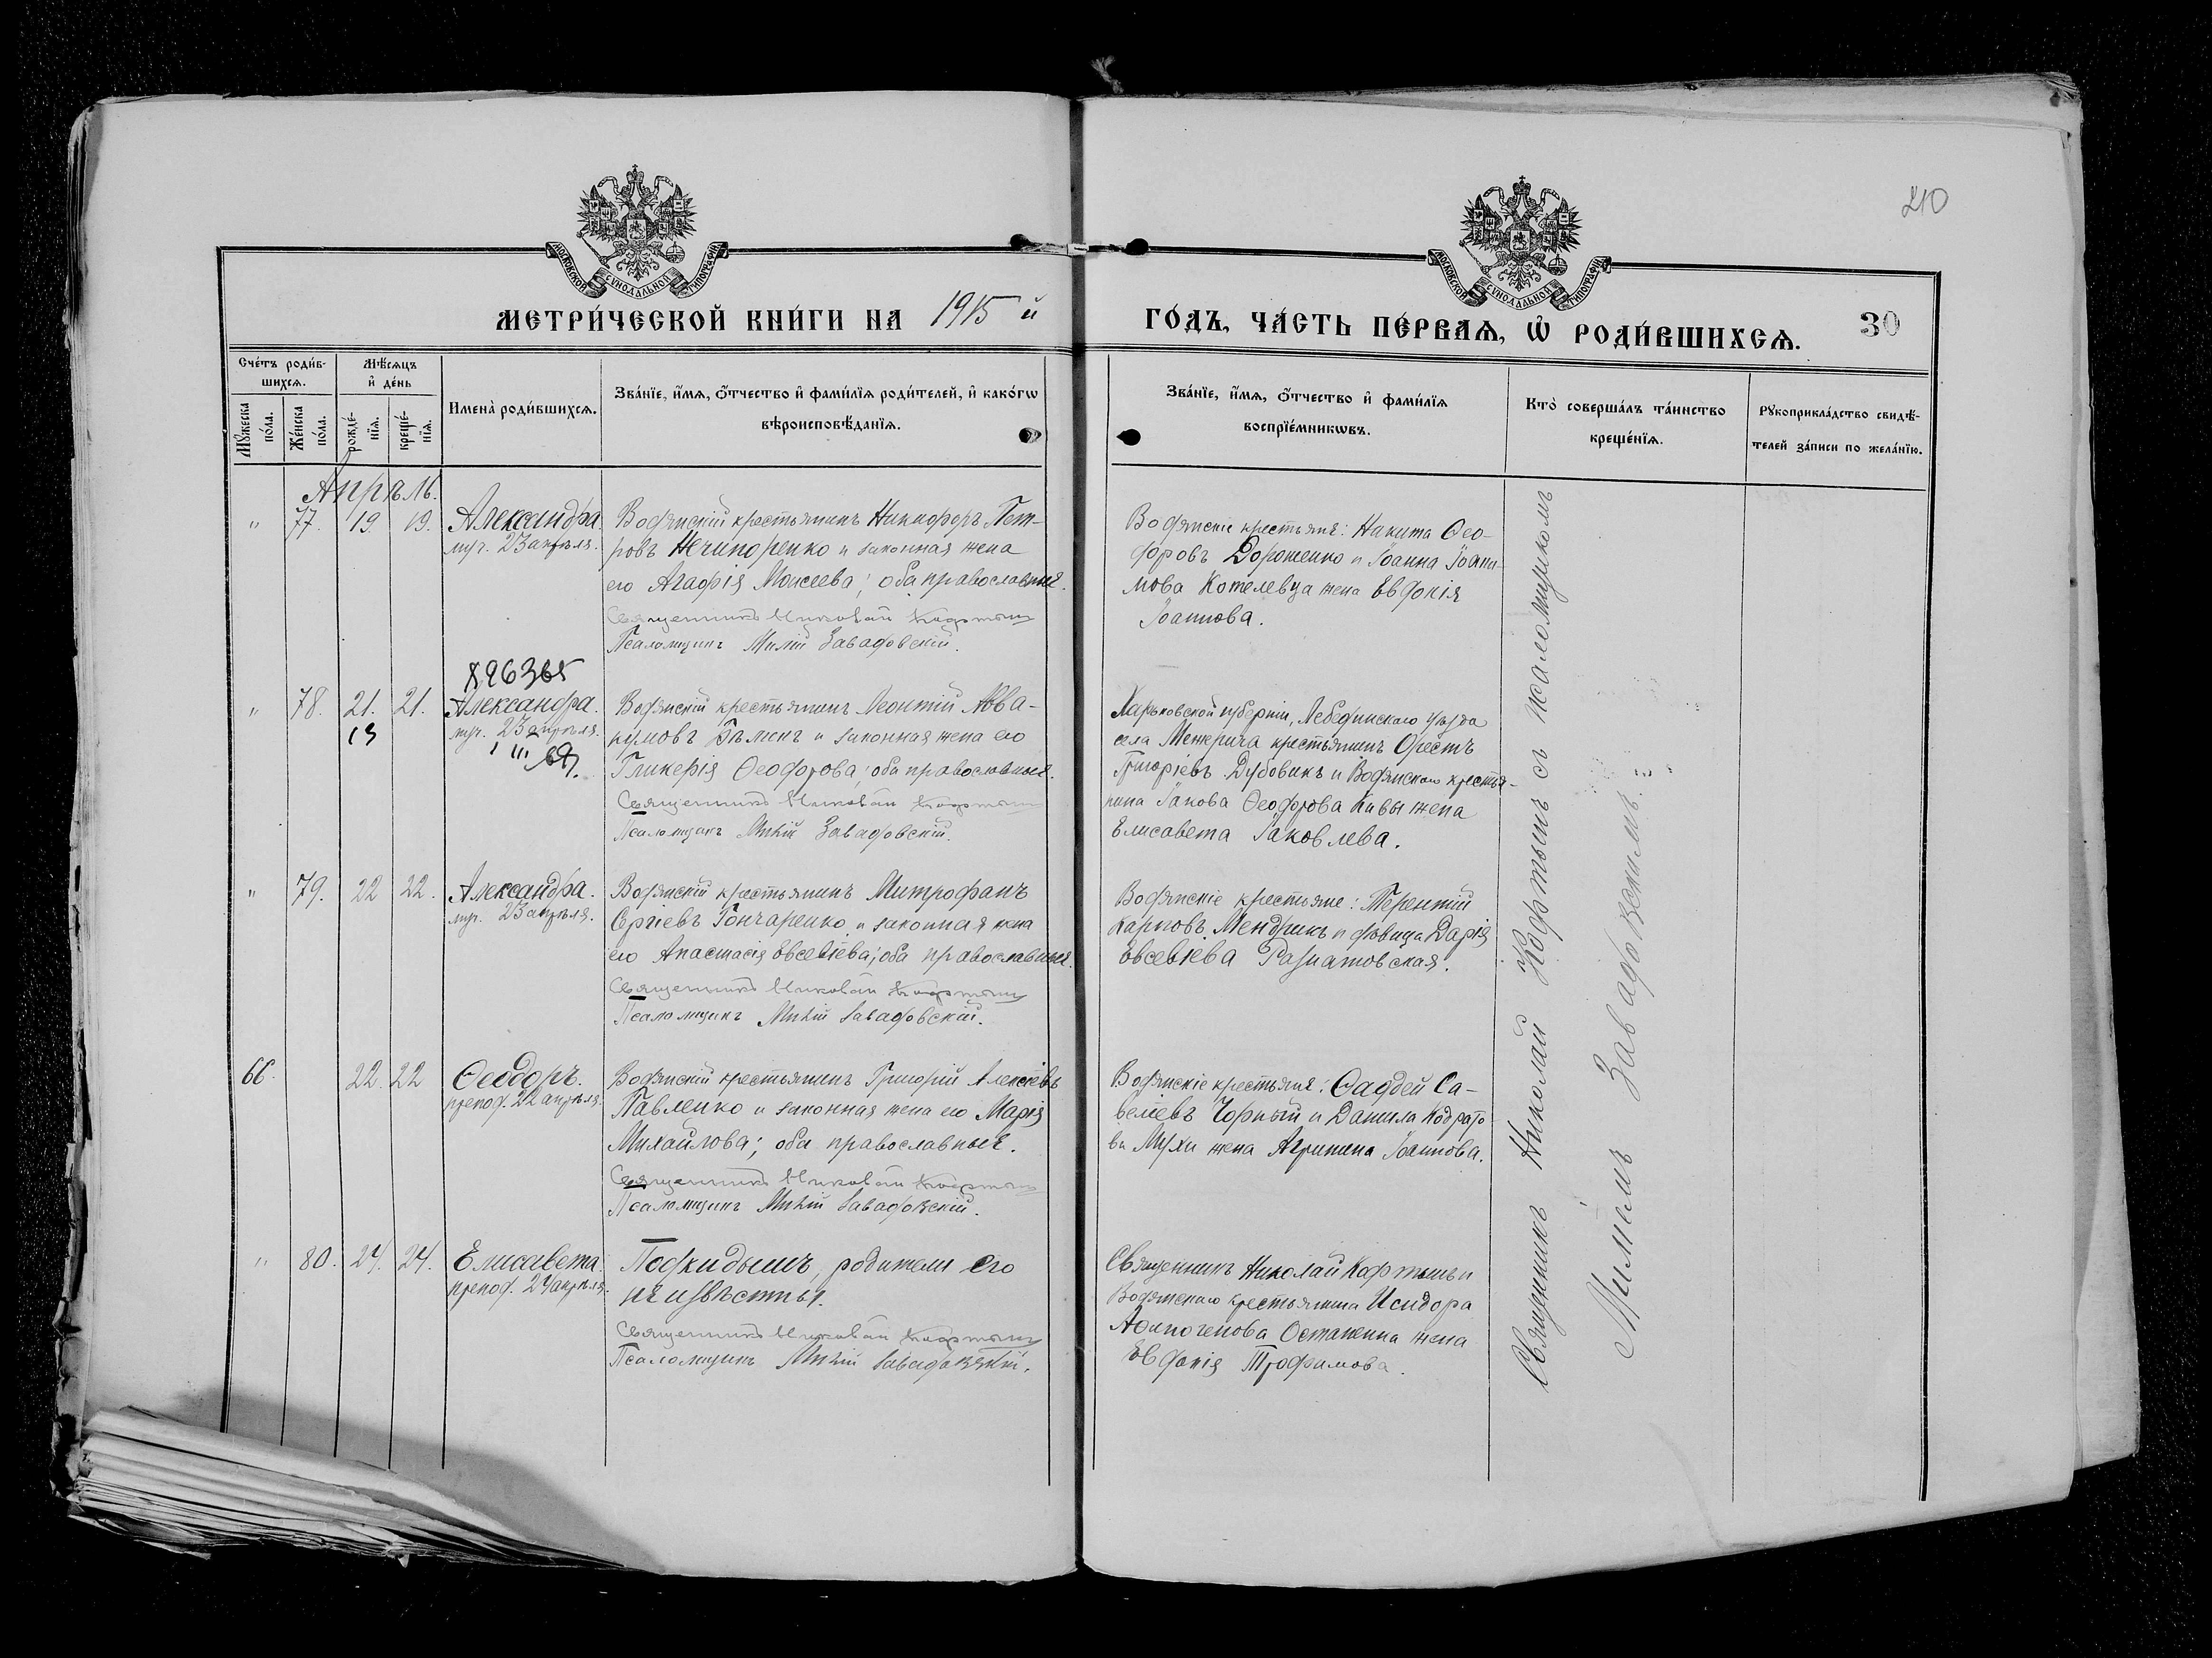 210
МОСКОВСКОЙ СѴНОДАЛЬНОЙ ТИПОГРАФІИ
МОСКОВСКОЙ СѴНОДАЛЬНОЙ ТИПОГРАФІИ
МЕТРИ́ЧЕСКОЙ КНИ́ГИ НА 1915 й
ГО́ДЪ, ЧА́СТЬ ПЕ́РВАѦ, Ѽ РОДИ́ВШИХСѦ.
30
Сче́тъ роди́в-
шихсѧ.
Мꙋ́жеска
по́ла.
Же́нска
по́ла.
Мѣ́сѧцъ
и҆ де́нь
рожде́-
нїѧ.
креще́-
нїѧ.
Имена̀ роди́вшихсѧ.
Зва́нїе, и҆́мѧ, ѻ҆́тчество и҆ фами́лїѧ роди́телей, и҆ како́гѡ
вѣроисповѣ́данїѧ.
Зва́нїе, и҆́мѧ, ѻ҆́тчество и҆ фами́лїѧ
воспрїе́мникѡвъ.
Кто̀ соверша́лъ та́инство
креще́нїѧ.
Рꙋкоприкла́дство свидѣ́-
телей за́писи по жела́нїю.
Апрѣль.
" 77. 19. 19. Александра
муч. 23 апрѣля.
Водянскій крестьянинъ Никифоръ Пет-
ровъ Нечипоренко и законная жена
его Агафія Моисеева; оба православные.
Священникъ Николай Кафтынъ
Псаломщикъ Милій Завадовскій.
Водянскіе крестьяне: Никита Ѳео-
доровъ Дорошенко и Іоанна Іоаки-
мова Котелевца жена Евдокія
Іоаннова.
" 78. 21. 21. Александра.
19
муч. 23 апрѣля.
Водянскій крестьянинъ Леонтій Авва-
кумовъ и законная жена его
Гликерія Ѳеодорова; оба православные.
Священникъ Николай Кафтынъ
Псаломщикъ Милій Завадовскій.
Харьковской губерніи, Лебединскаго уѣзда
села Межирича крестьянинъ Орестъ
Григоріевъ Дубовикъ и Водянскаго крестья-
нина Іакова Ѳеодорова Кивы жена
Елисавета Іаковлева.
" 79. 22 22. Александра.
муч. 23 апрѣля.
Водянскій крестьянинъ Митрофанъ
Сергіевъ Гончаренко и законная жена
его Анастасія Евсевіева; оба православные.
Священникъ Николай Кафтынъ
Псаломщикъ Милій Завадовскій.
Водянскіе крестьяне: Терентій
Карповъ Мендрикъ и дѣвица Дарія
Евсевіева
66. 22. 22 Ѳеодоръ.
препод. 22 апрѣля.
Водянскій крестьянинъ Григорій Алексіевъ
Павленко и законная жена его Марія
Михайлова; оба православные.
Священникъ Николай Кафтынъ
Псаломщикъ Милій Завадовскій.
Водянскіе крестьяне: Ѳаддей Са-
веліевъ Чорный и Даниила Кодрато-
ва Мухи жена Агрипина Іоаннова.
" 80. 24. 24. Елисавета.
препод. 24 апрѣля.
Подкидышъ, родители его
неизвѣстны.
Священникъ Николай Кафтынъ
Псаломщикъ Милій Завадовскій.
Священникъ Николай Кафтынъ и
Водянскаго крестьянина Исидора
Аѳиногенова жена
Евдокія Трофимова.
Священникъ Николай Кафтынъ съ псаломщикомъ
Миліемъ Завадовскимъ.